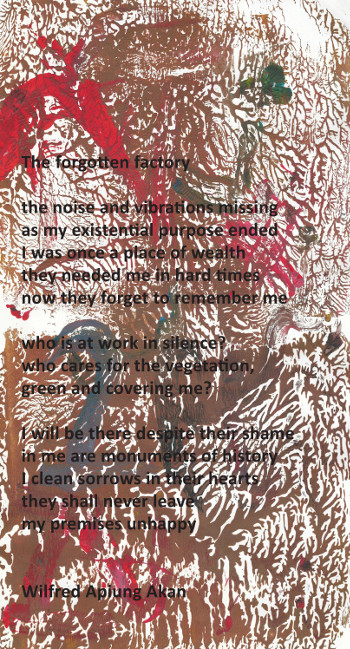 The forgotten factory
the noise and vibrations missing
as my existential purpose ended
I was once a place of wealth
they needed me in hard times
now they forget to remember me
who is at work in silence?
who cares for the vegetation,
green and covering me?
I will be there despite their shame
in me are monuments of history
I clean sorrows in their hearts
they shall never leave
my premises unhappy
Wilfred Apiung Akan